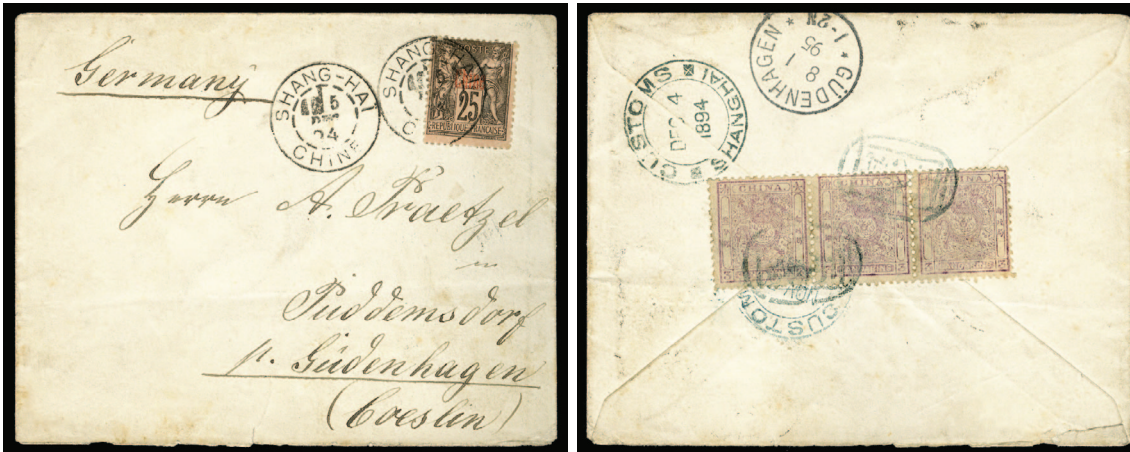 Germany
SHANG-HAI
5
24
CHINE
SHANG-HAI
POSTE
25
REPUBLIQUE FRANCAISE
Herrn A. Praetzel
in
Püddemsdorf
p. Güdenhagen
(Coeslin)
* GÜDENHAGEN *
8 1
95
1-2N
CUSTOMS
SHANGHAI
DEC 24
1894
CHINA
CHINA
CUSTOM